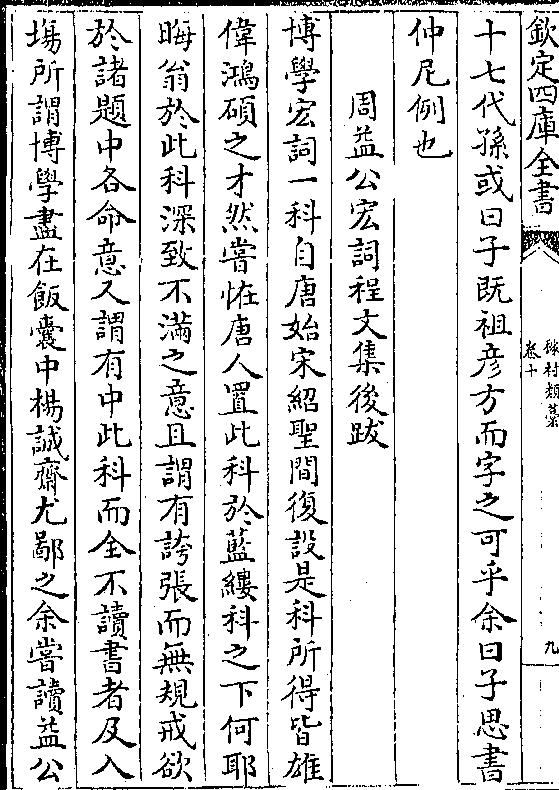 欽定四庫全書
稼村類藁
卷十
九
十七代孫或曰子既祖彦方而字之可乎余曰子思書
仲尼例也
周益公宏詞程文集後跋
博學宏詞一科自唐始宋紹聖間復設是科所得皆雄
偉鴻碩之才然嘗怪唐人置此科於藍縷科之下何耶
晦翁於此科深致不滿之意且謂有誇張而無規戒欲
於諸題中各命意又謂有中此科而全不讀書者及入
塲所謂博學盡在飯囊中楊誠齋尤鄙之余嘗讀益公